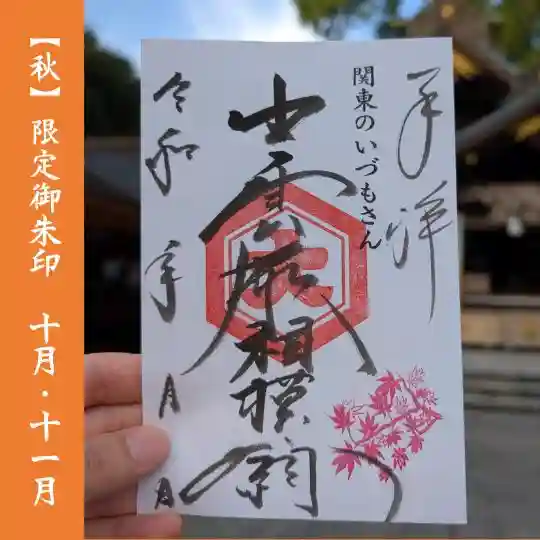 【秋】限定御朱印 十月・十一月
奉拝
関東のいづもさん
出雲大社相模分祠
大
令和 年 月 日